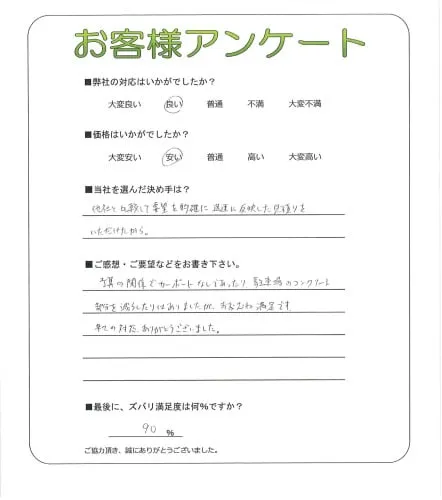 お客様アンケート
■弊社の対応はいかがでしたか？
大変良い 良い 普通 不満 大変不満
■価格はいかがでしたか？
大変安い 安い 普通 高い 大変高い
■当社を選んだ決め手は？
他社と比較して要望を的確に迅速に反映した見積りを
いただけたから。
■ご感想・ご要望などをお書き下さい。
予算の関係でカーポートなしであったり 駐車場のコンクリート
部分を減らしたりはありましたが、おおむね満足です。
の対応、ありがとうございました。
■最後に、ズバリ満足度は何％ですか？
90 ％
ご協力頂き、誠にありがとうございました。